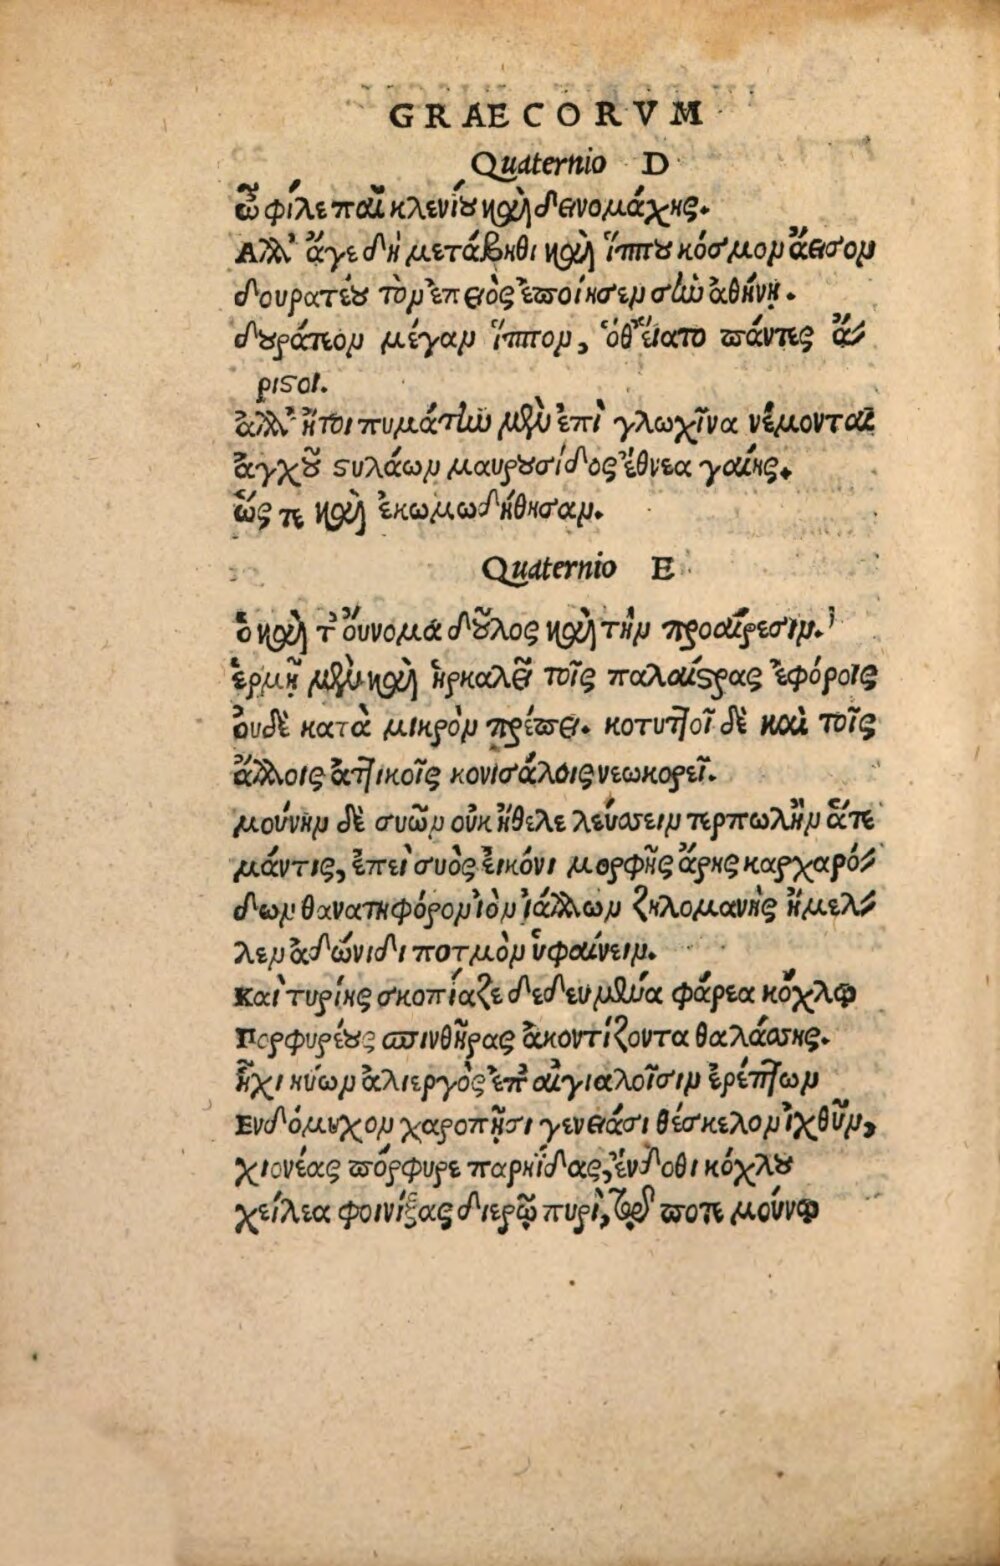 GRAECORVM
Quaternio D
ὦ φίλε παῖ κλενίου καὶ δεινομάχης.
Αλλ' ἄγε δὴ μετάβηθι καὶ ἵππου κόσμον ἄεισον
δουρατέου τὸν ἐπειὸς ἐποίησεν σὺν ἀθήνῃ.
δουράτεον μέγαν ἵππον, ὅθ' εἵατο πάντες ἄ-
ριστοι.
ἀλλ' ἤτοι πυμάτην μὲν ἐπὶ γλωχῖνα νέμονται
ἀγχοῦ στυλάων μαυρουσίδος ἔθνεα γαίης.
ὥς τε καὶ ἐκωμωδήθησαν.
Quaternio E
ὁ καὶ τ' οὔνομα δοῦλος καὶ τὴν προαίρεσιν.
ἑρμῇ μὲν καὶ ἡρκαλεῖ τοῖς παλαίστρας ἐφόροις
ουδὲ κατὰ μικρὸν πρέπει. κοτυττοῖ δὲ καὶ τοῖς
ἄλλοις ἀττικοῖς κονισάλοις νεωκορεῖ.
μούνην δὲ συῶν οὐκ ἤθελε λεύσσειν τερπωλὴν ἅτε
μάντις, ἐπεὶ συὸς εἰκόνι μορφῆς ἄρης καρχαρό-
δων θανατηφόρον ἰὸν ἰάλλων ζηλομανὴς ἤμελ-
λεν ἀδώνιδι ποτμὸν ὑφαίνειν.
Καὶ τυρίης σκοπίαζε δεδευμένα φάρεα κόχλῳ
Πορφυρέους σπινθῆρας ἀκοντίζοντα θαλάσσης.
ἧχι κύων ἁλιεργὸς ἐπ' αἰγιαλοῖσιν ἐρέπτων
Ενδόμυχον χαροπῇσι γενειάσι θέσκελον ἰχθῦν,
χιονέας πόρφυρε παρηΐδας, ἔνδοθι κόχλου
χείλεα φοινίξας διερῷ πυρὶ, τῷ ποτε μούνῳ